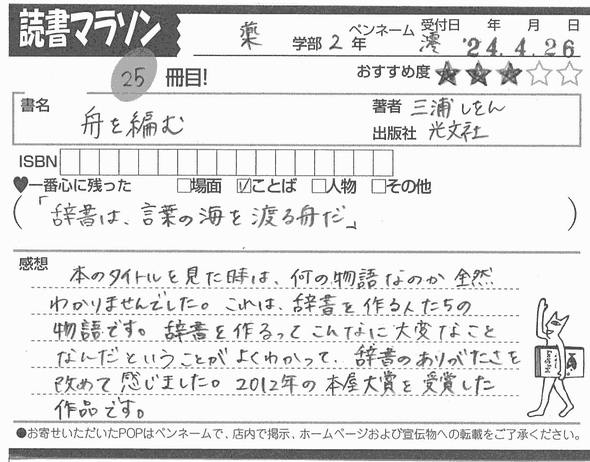 読書マラソン
薬 学部 2 年 ペンネーム 澪 受付日 年 月 日 '24.4.26
25 冊目! おすすめ度 ★★★☆☆
書名 舟を編む 著者 三浦しをん
出版社 光文社
ISBN
♥一番心に残った □場面 ☑ことば □人物 □その他
(「辞書は、言葉の海を渡る舟だ」)
感想
本のタイトルを見た時は、何の物語なのか全然
わかりませんでした。これは、辞書を作る人たちの
物語です。辞書を作るってこんなに大変なこと
なんだということがよくわかって、辞書のありがたさを
改めて感じました。2012年の本屋大賞を受賞した
作品です。
●お寄せいただいたPOPはペンネームで、店内で掲示、ホームページおよび宣伝物への転載をご了承ください。